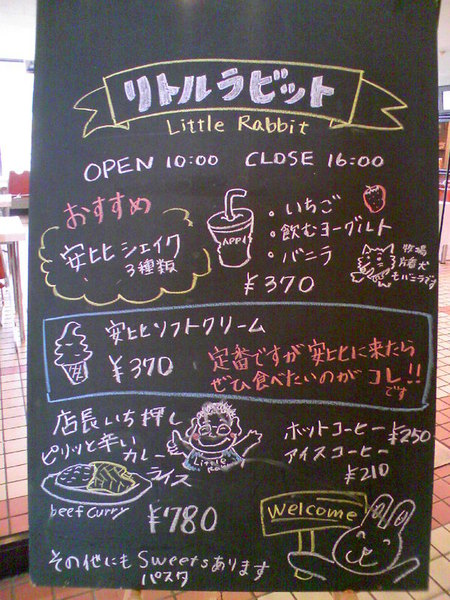 リトルラビット
Little Rabbit
OPEN 10:00 CLOSE 16:00
おすすめ
安比シェイク
3種類
APPI
・いちご
・飲むヨーグルト
・バニラ
¥370
牧場
もバニラです
安比ソフトクリーム
¥370
定番ですが安比に来たら
ぜひ食べたいのがコレ!!
です
店長いち押し
ピリッと辛い
カレー
ライス
Little
Rab
beef curry
¥780
ホットコーヒー ¥250
アイスコーヒー
¥210
Welcome
その他にもSweetsあります
パスタ